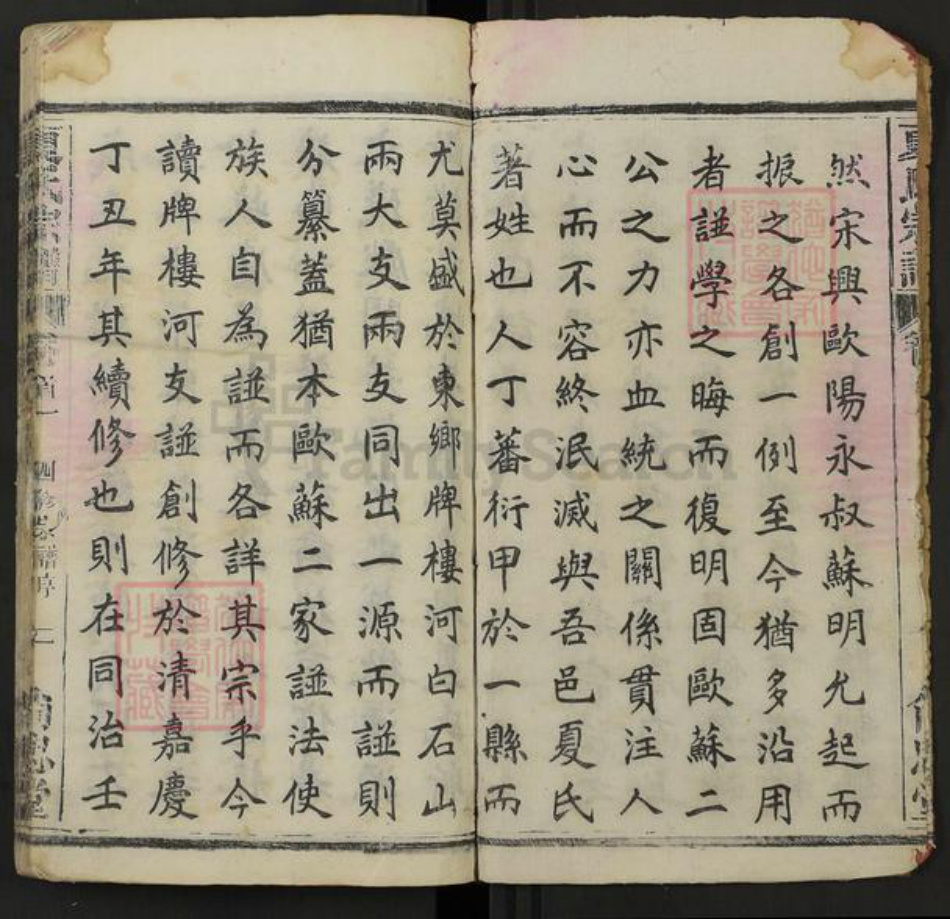 然宋興歐陽永叔蘇明允起而
振之各創一例至今猶多沿用
者諩學之晦而復明固歐蘇二
公之力亦血統之關係貫注人
心而不容終泯滅與吾邑夏氏
著姓也人丁蕃衍甲於一縣而
尤莫盛於東鄉牌樓河白石山
兩大支兩支同出一源而諩則
分纂蓋猶本歐蘇二家諩法使
族人自為諩而各詳其宗乎今
讀牌樓河支諩創修於清嘉慶
丁丑年其續修也則在同治壬
夏氏宗譜
卷首一
四修宗譜序
二
FamilySearch